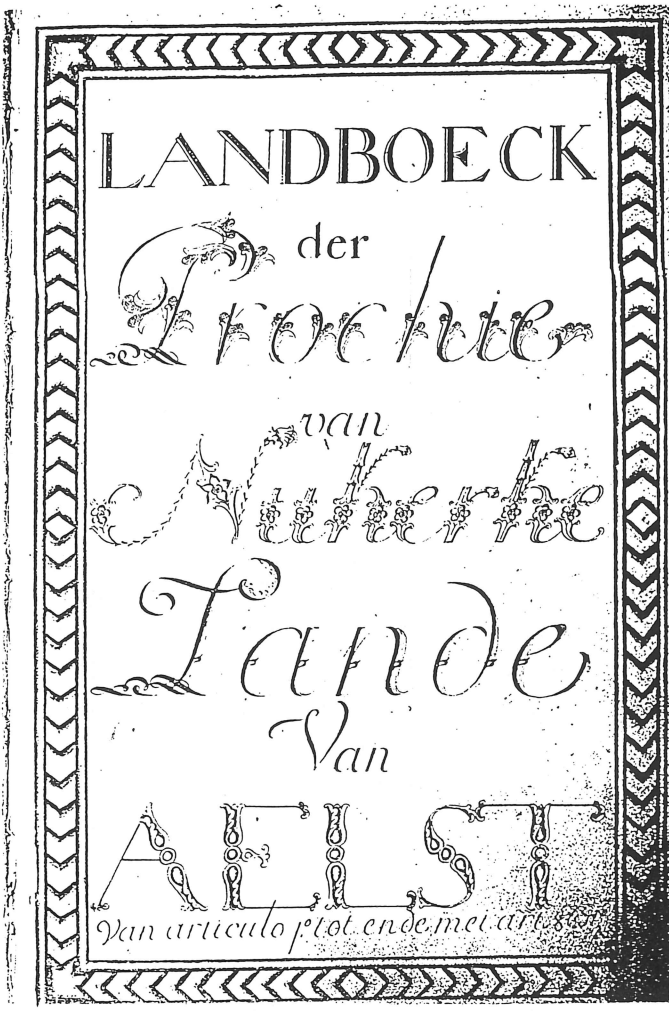 LANDBOECK
der
Prochie
van
Nukerke
Lande
Van
AELST
Van articulo p.º tot ende met art.